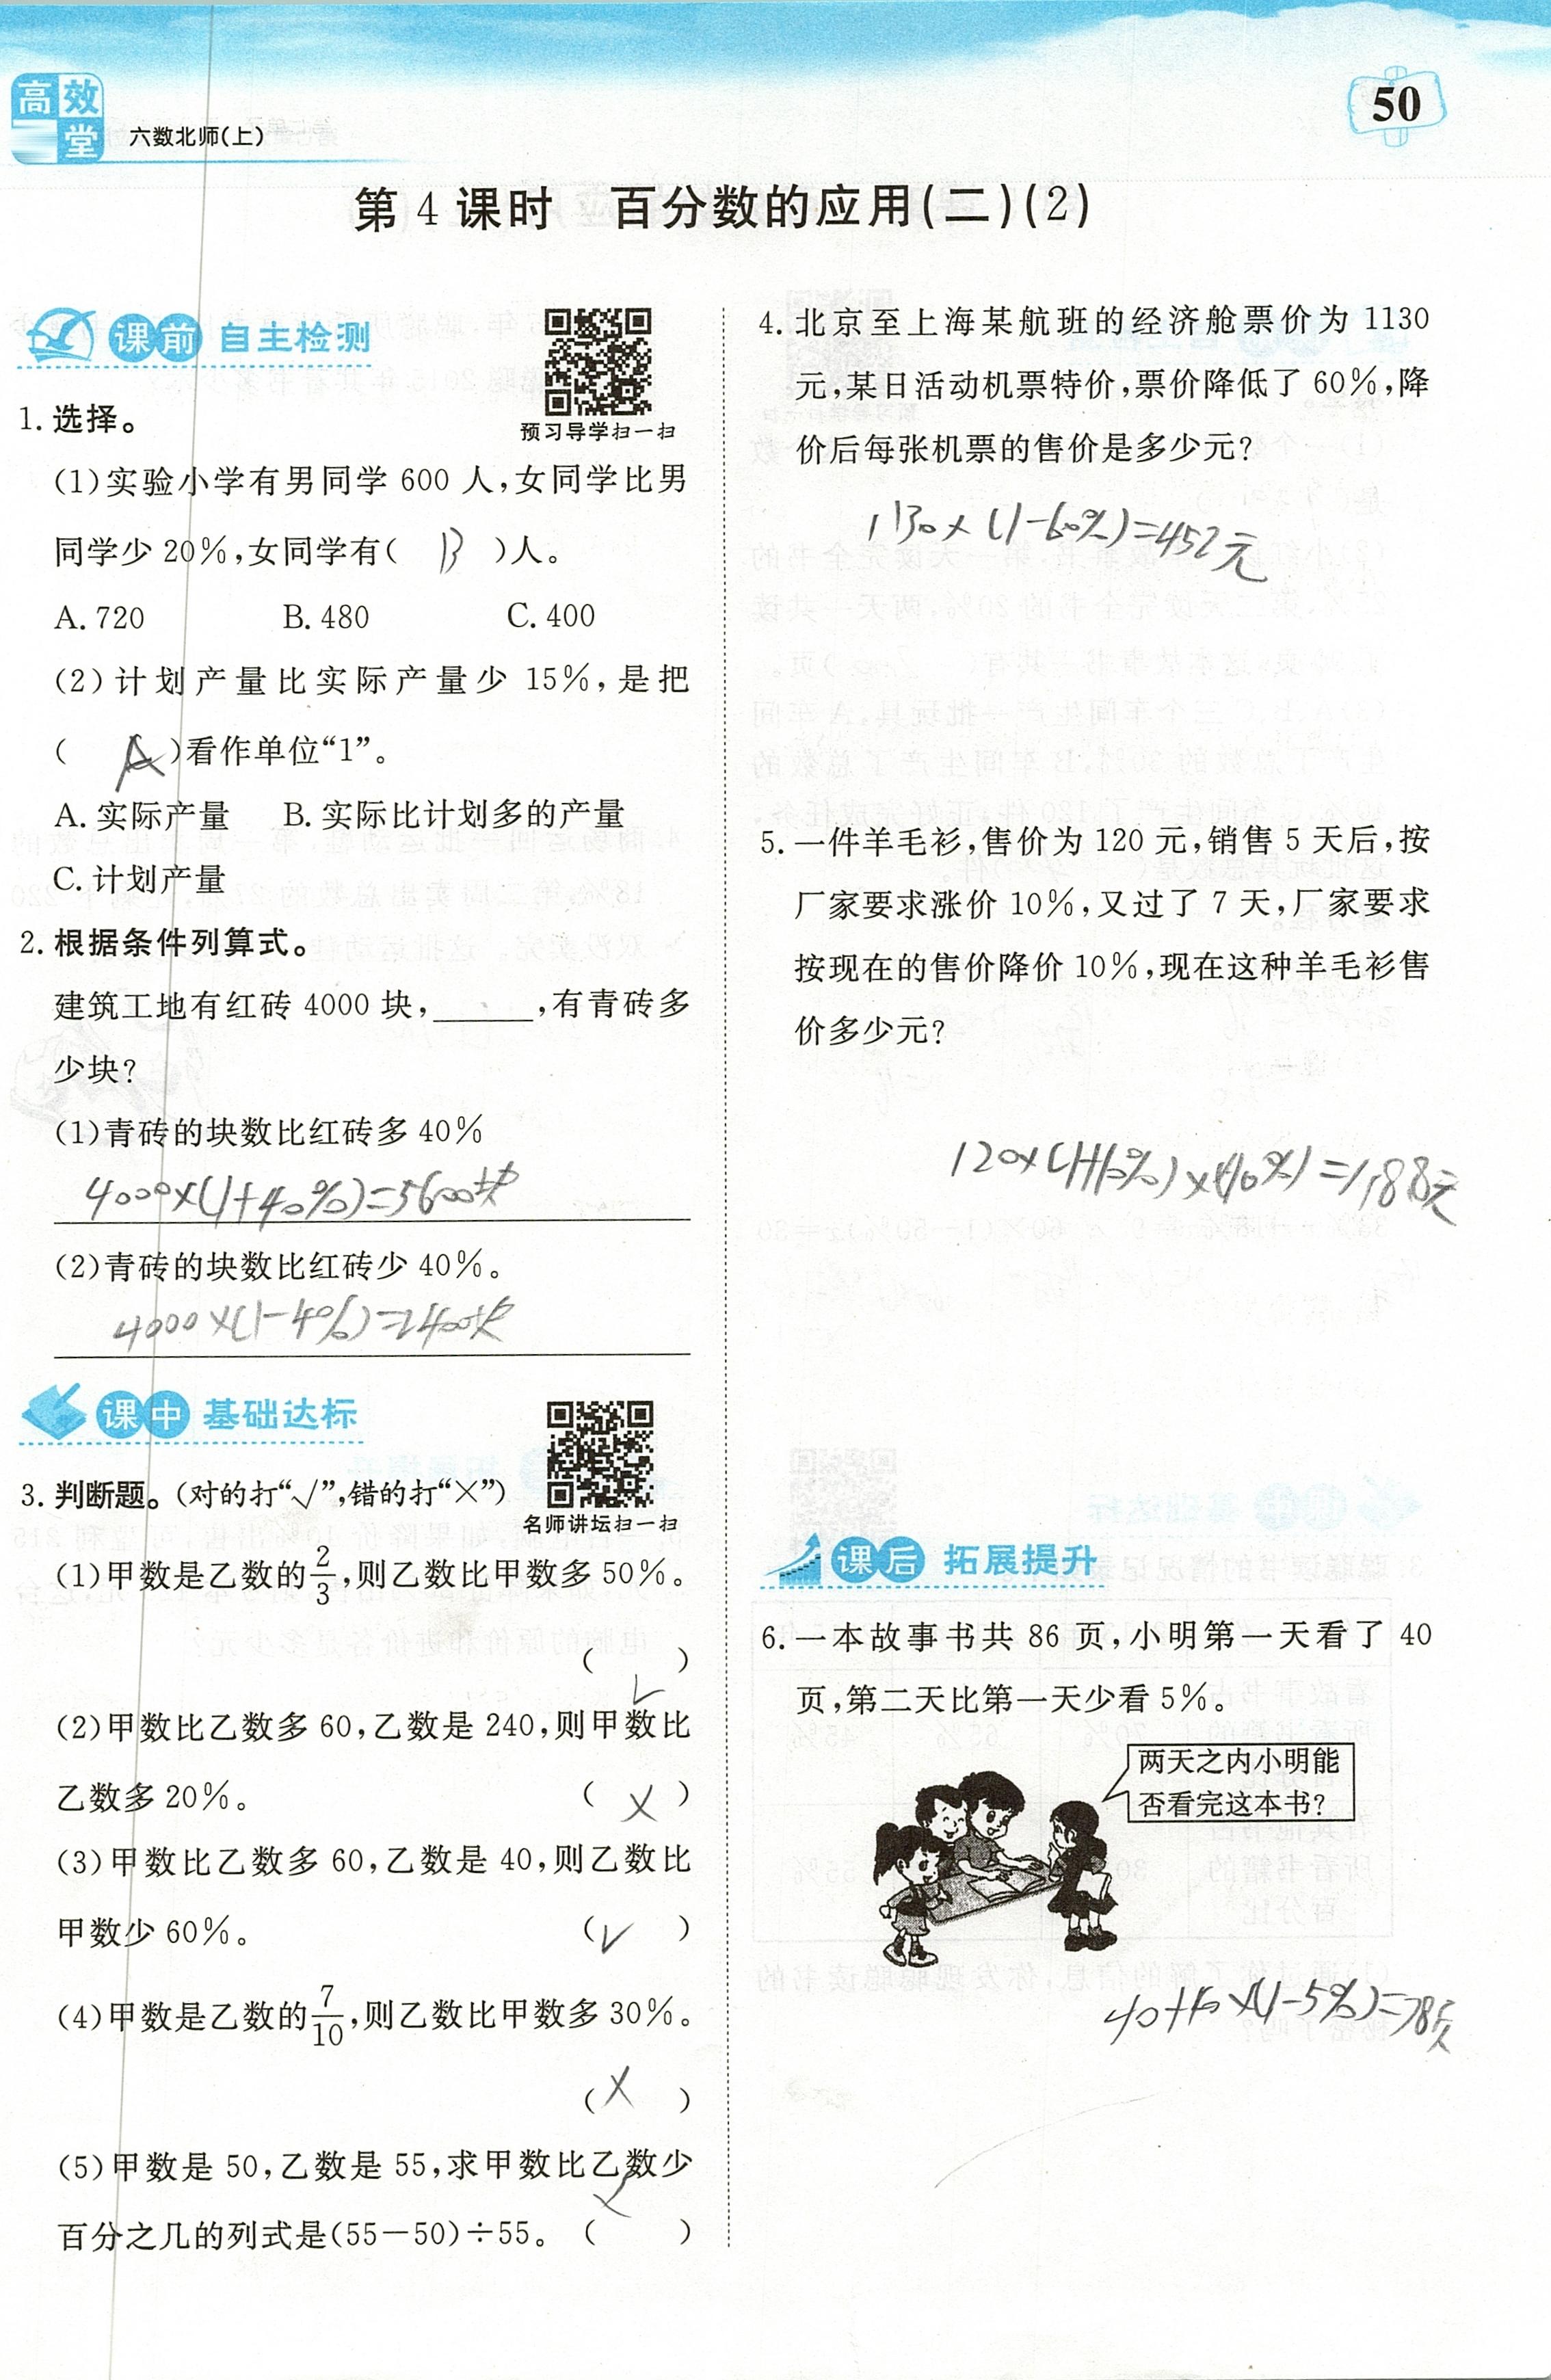 高效
堂
六数北师(上)
50
第 4 课时 百分数的应用(二)(2)
课前 自主检测
预习导学扫一扫
1. 选择。
(1)实验小学有男同学 600 人,女同学比男
同学少 20%,女同学有( B )人。
A. 720 B. 480 C. 400
(2)计划产量比实际产量少 15%,是把
( A )看作单位“1”。
A. 实际产量 B. 实际比计划多的产量
C. 计划产量
2. 根据条件列算式。
建筑工地有红砖 4000 块,______,有青砖多
少块?
(1)青砖的块数比红砖多 40%
4000×(1+40%)=5600块
(2)青砖的块数比红砖少 40%。
4000×(1-40%)=2400块
课中 基础达标
名师讲坛扫一扫
3. 判断题。(对的打“√”,错的打“×”)
(1)甲数是乙数的2/3,则乙数比甲数多 50%。
( √ )
(2)甲数比乙数多 60,乙数是 240,则甲数比
乙数多 20%。 ( × )
(3)甲数比乙数多 60,乙数是 40,则乙数比
甲数少 60%。 ( √ )
(4)甲数是乙数的7/10,则乙数比甲数多 30%。
( × )
(5)甲数是 50,乙数是 55,求甲数比乙数少
百分之几的列式是(55-50)÷55。 ( )
4. 北京至上海某航班的经济舱票价为 1130
元,某日活动机票特价,票价降低了 60%,降
价后每张机票的售价是多少元?
1130×(1-60%)=452元
5. 一件羊毛衫,售价为 120 元,销售 5 天后,按
厂家要求涨价 10%,又过了 7 天,厂家要求
按现在的售价降价 10%,现在这种羊毛衫售
价多少元?
120×(1+10%)×(1-10%)=118.8元
课后 拓展提升
6. 一本故事书共 86 页,小明第一天看了 40
页,第二天比第一天少看 5%。
两天之内小明能
否看完这本书?
40+40×(1-5%)=78页